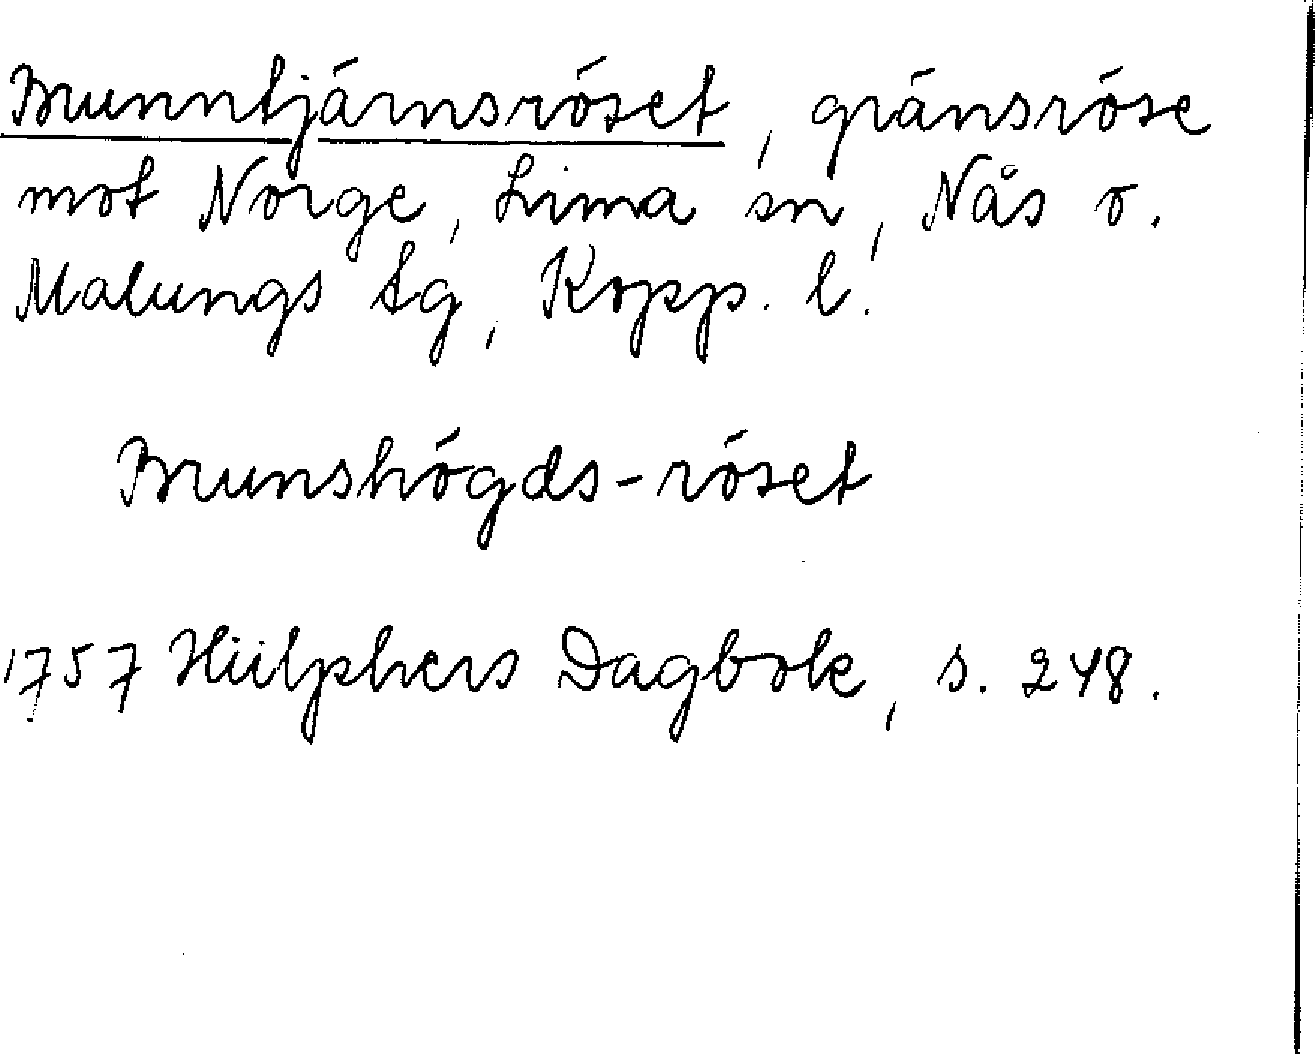 Brunntjärnsröset, gränsröse
mot Norge, Lima sn, Nås o.
Malungs tg, Kopp. l.
Brunshögds-röset
1757 Hülphers Dagbok, s. 248.